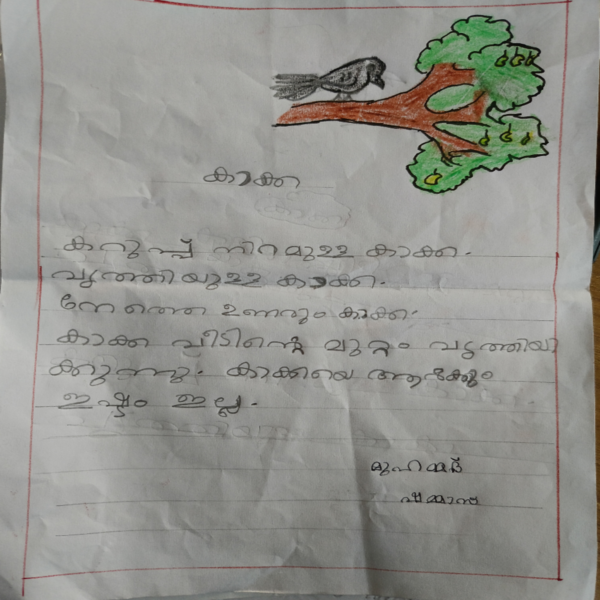 കാക്ക
കറുപ്പ് നിറമുള്ള കാക്ക.
വൃത്തിയുള്ള കാക്ക.
നേരത്തെ ഉണരും കാക്ക.
കാക്ക വീടിൻ്റെ ചുറ്റും വൃത്തിയാ
ക്കുന്നു. കാക്കയെ ആർക്കും
ഇഷ്ടം ഇല്ല.
മുഹമ്മദ്